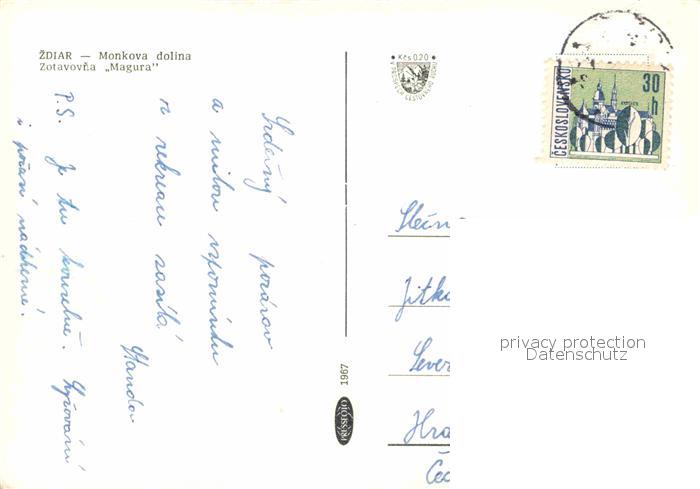 ŽDIAR — Monkova dolina
Zotavovňa „Magura"
Kčs 0,20
ČESKOSLOVENSKO
30
h
Srdečný pozdrav
a milou vzpomínku
z rekreace zasílá
Standa
P.S. Je tu kouzelně. Lyžování
i počasí nádherné.
1967
Slečn
Jitka
Sever
Hra
privacy protection
Datenschutz